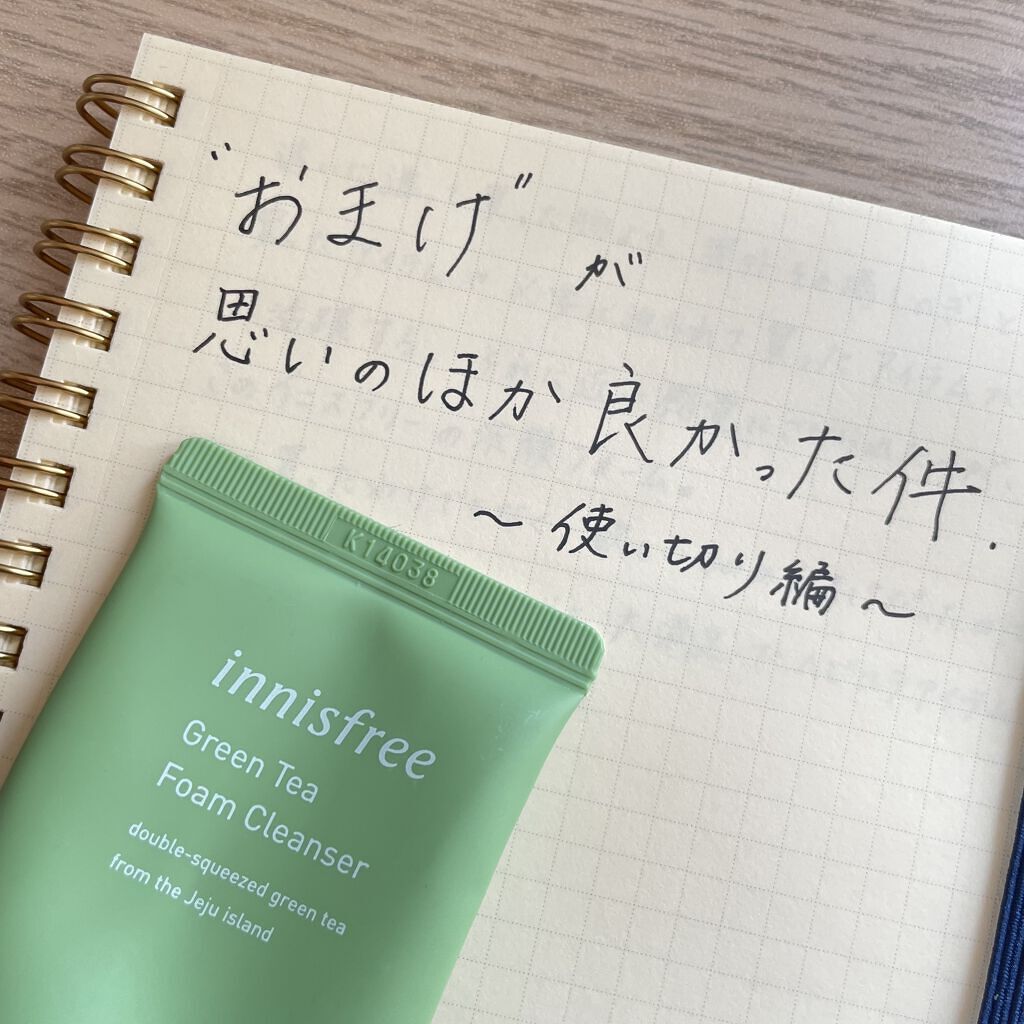 "おまけ"が
思いのほか良かった件.
～使い切り編～
K14038
innisfree
Green Tea
Foam Cleanser
double-squeezed green tea
from the Jeju island